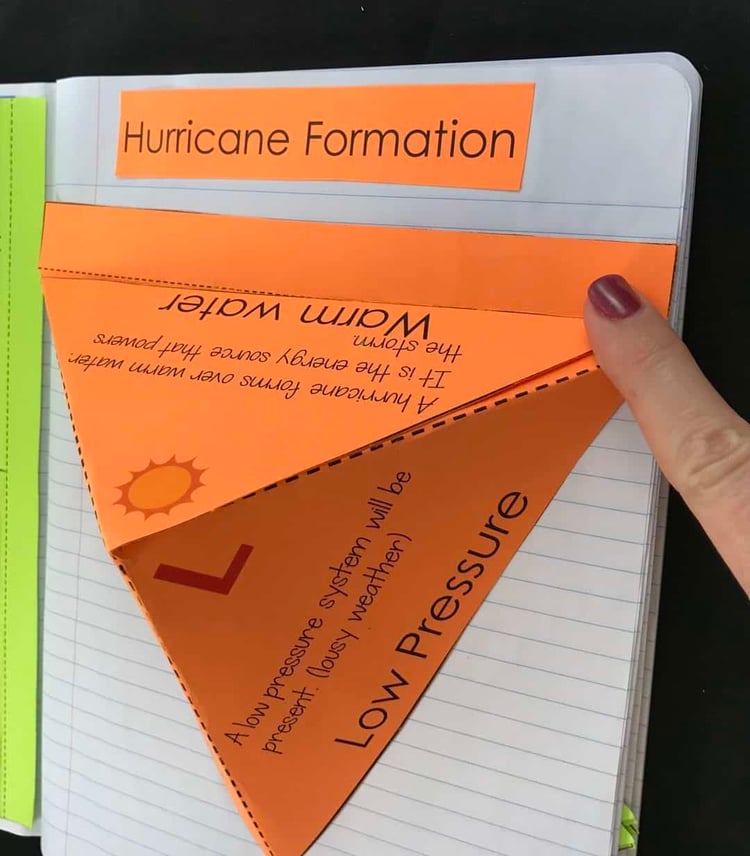 Hurricane Formation
Warm water
A hurricane forms over warm water.
It is the energy source that powers
the storm.
L
A low pressure system will be
present. (lousy weather)
Low Pressure